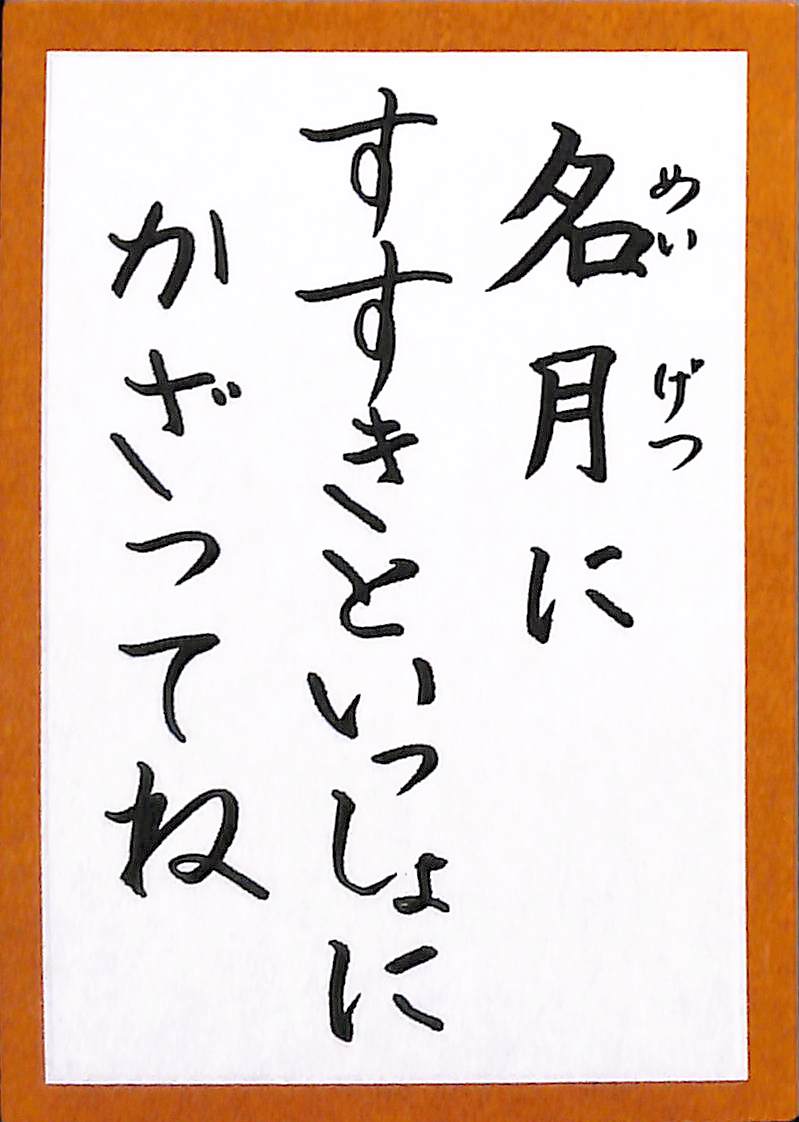 名月に
めいげつ
すすきといっしょに
かざってね